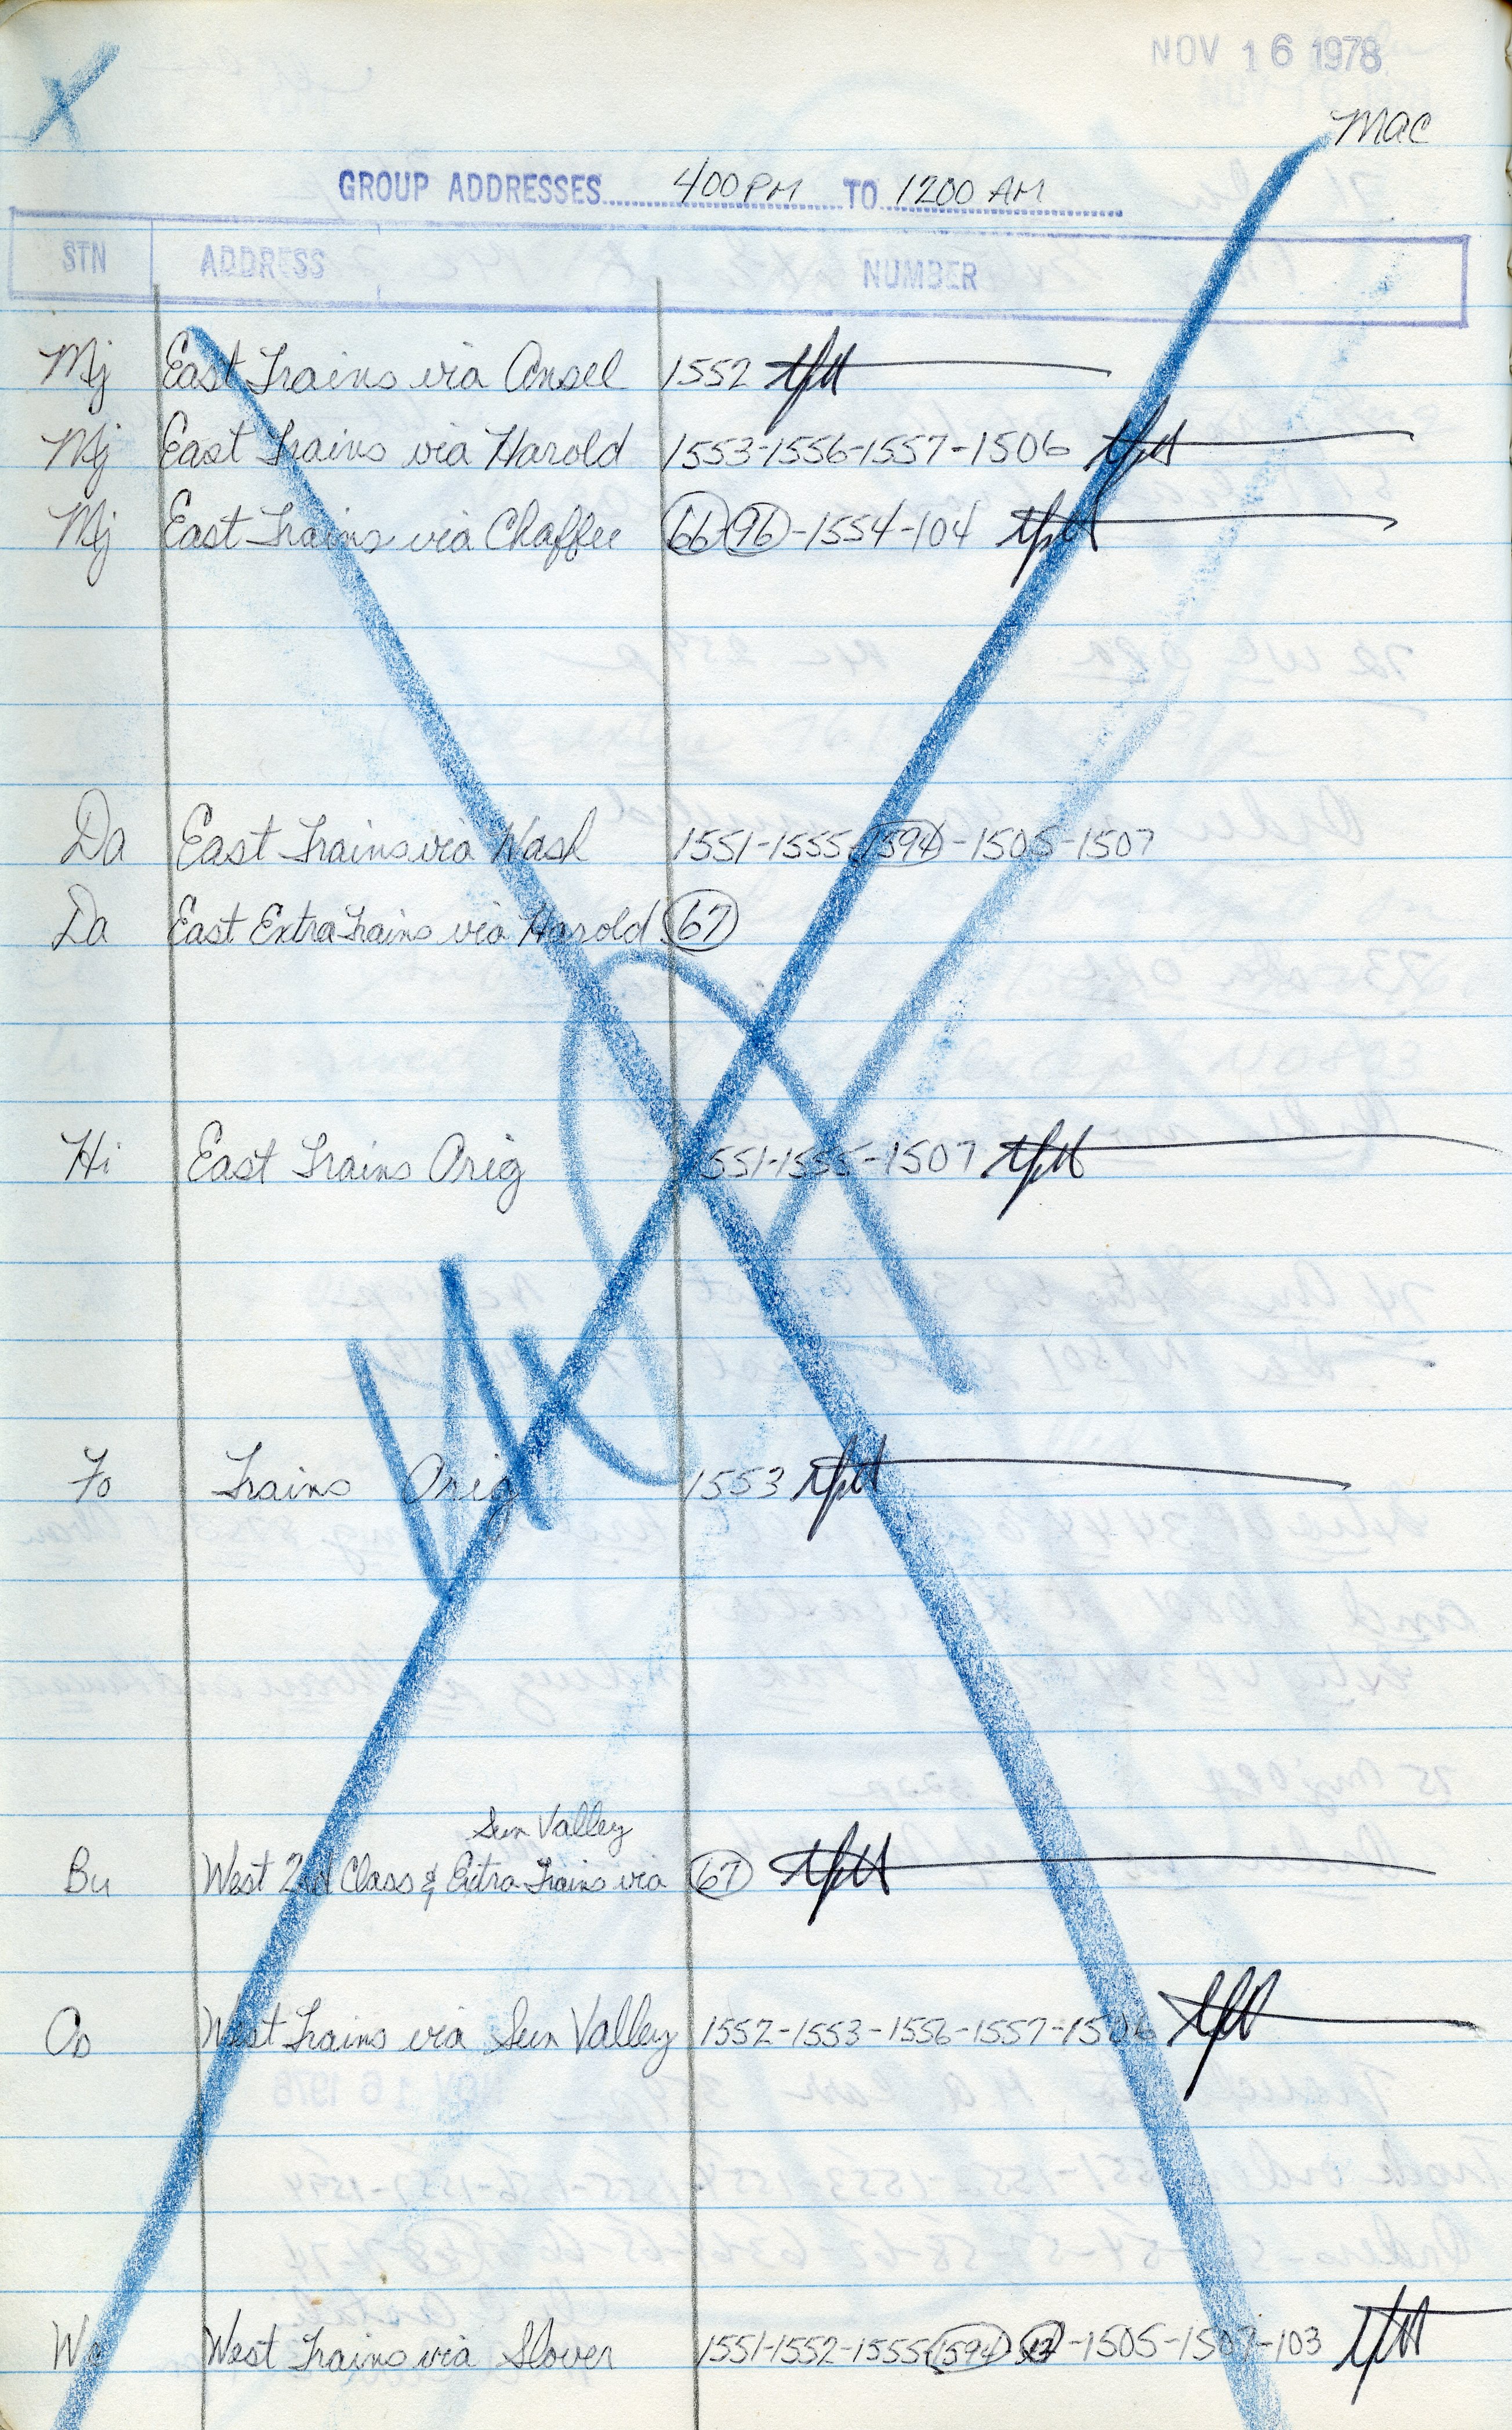 X
NOV 16 1978
Mac
GROUP ADDRESSES 400 PM TO 1200 AM
STN ADDRESS NUMBER
Mj East Trains via Ansel 1552
Mj East Trains via Harold 1553-1556-1557-1506
Mj East Trains via Chaffee 66-96-1554-104
Da East Trains via Nash 1551-1555-1594-1505-1507
Da East Extra Trains via Harold 67
Hi East Trains Orig 1551-1555-1507
Fo Trains Orig 1553
Sun Valley
Bu West 2nd Class & Extra Trains via 67
West Trains via Sun Valley 1552-1553-1556-1557-1506
West Trains via Slover 1551-1552-1555-1594 -1505-1507-103